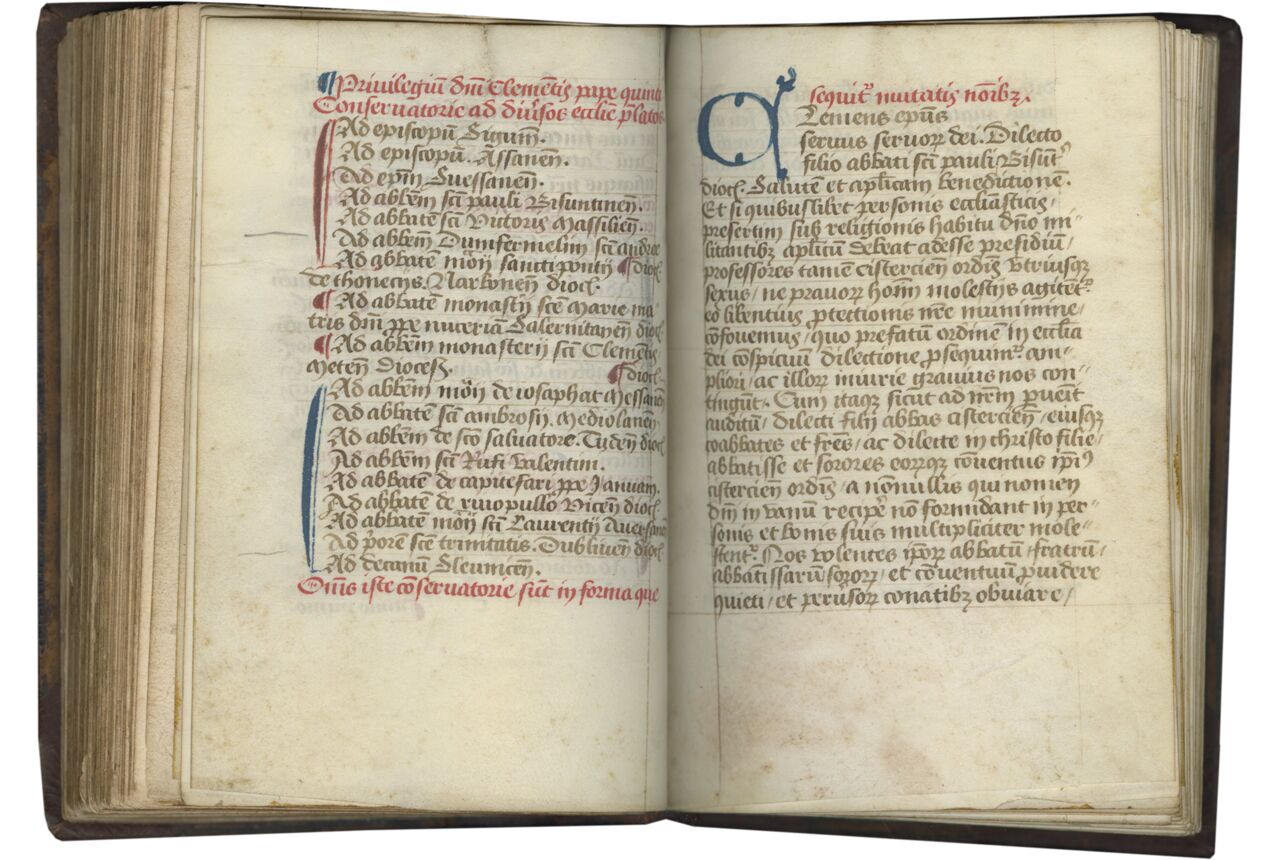 ¶ Priuilegiū dn̄i Clemētis pape quinti
Conseruatorie ad diu̓sos eccl̄ie p̄latos
Ad episcopū Sigun̄.
Ad episcopū. Assanen̄.
Ad ep̄m Suessanen̄.
Ad abbē̄m sc̄i pauli Bisuntinen̄.
Ad abbatē sc̄i Victoris Massilien̄.
Ad abbē̄m Dumfermelin̄ sc̄i andree
Ad abbatē mōn̄ sancti pontii ¶ dioc̄.
de thonecijs. Narbonen̄ dioc̄.
¶ Ad abbatē monast̄ij sc̄e Marie ma
tris dn̄i ꝓpe nuceriā Salernitanen̄ dioc̄
¶ Ad abbē̄m monasterij sc̄i Clemētis
Meten̄ Dioces̄. ¶ dioc̄.
Ad abbē̄m mōn̄ de iosaphat Messanen̄
Ad abbatē sc̄i ambrosij. Mediolanen̄
Ad abbē̄m de sc̄o saluatore. Tuden̄ dioc̄
Ad abbē̄m sc̄i Rufi valentin̄.
Ad abbatē de capitefari ꝓpe Januam.
Ad abbatē de riuopullo Vicen̄ dioc̄
Ad abbatē mōn̄ sc̄i Laurentij Auersanen̄
Ad p̓orē sc̄e trinitatis. Dublinen̄ dioc̄
Ad decanū Sleuuicen̄.
Om̄s iste cōseruatorie sūt in forma que
sequit᷑ mutatis no̓ibꝫ.
Clemens ep̄us
seruus seruoꝝ dei. Dilecto
filio abbati sc̄i pauli Bisūt᷑
dioc̄. Salutē et ap̄licam benedictionē.
Et si quibuslibet personis eccl̄iasticis /
presertim sub religionis habitu dn̄o mi
litantibꝫ ap̄licū debeat adesse presidiū /
professores tamē cistercien̄ ordīs vtriusqꝫ
sexus / ne prauoꝝ hoīm molestijs agitēt᷑
eo libentius ꝓtectionis n̄re munimine /
cōfouemus / quo prefatū ordinē in eccl̄ia
dei cōspicuū dilectione ꝓsequim᷑ am
pliori / ac illoꝝ iniurie grauius nos con
tingūt. Cum itaqꝫ sicut ad n̄rm ꝑuēit
auditū / dilecti filij abbas cistercien̄ / eiusqꝫ
coabbates et fr̄es / ac dilecte in christo filie /
abbatisse et sorores eorꝙ cōuentus ip̄i⁹
cistercien̄ ordīs / a nōnullis qui nomen
dn̄i in vanū recip̓e nō formidant in per
sonis et bonis suis multipliciter mole
stent᷑. Nos volentes ip̄oꝝ abbatū / fratrū /
abbatissarū soroꝝ / et cōuentuū ꝓuidere
quieti / et peruersoꝝ conatibꝫ obuiare /